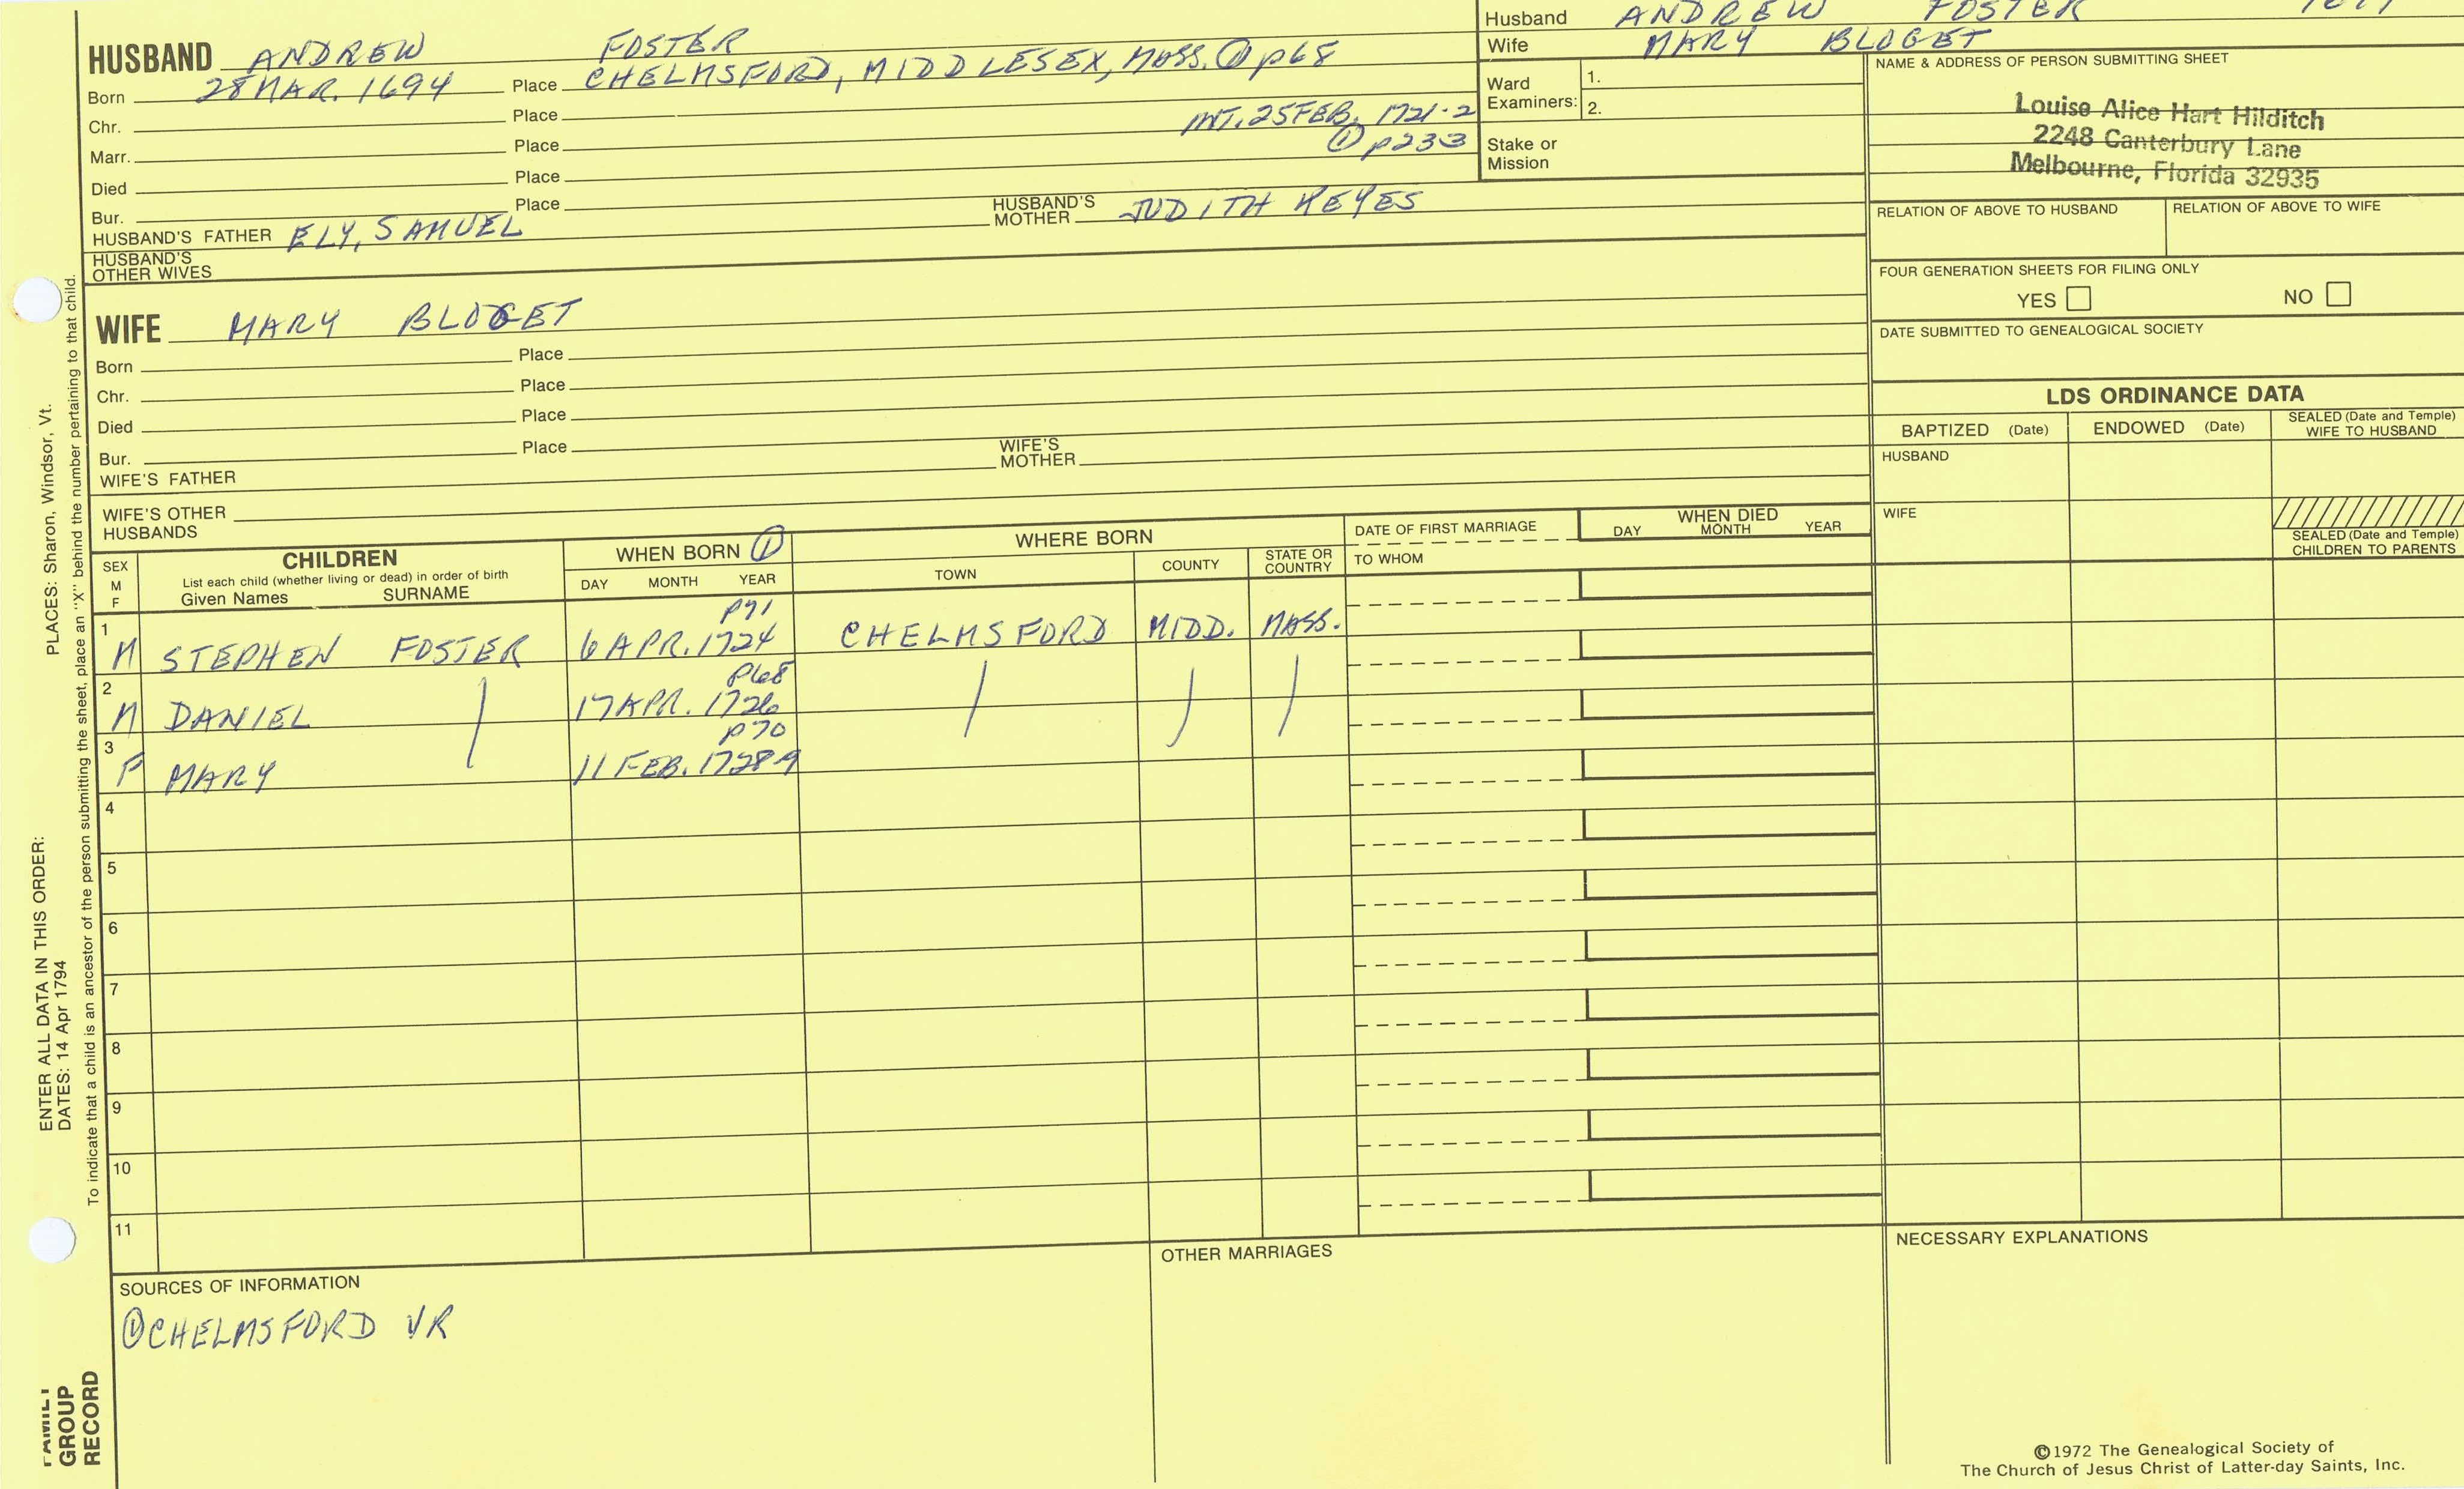 HUSBAND ANDREW FOSTER
Born 28 MAR. 1694 Place CHELMSFORD, MIDDLESEX, MASS. ① p68
Chr. Place
INT. 25 FEB. 1721-2
Marr. Place ① p233
Died Place
Bur. Place
HUSBAND'S FATHER ELY, SAMUEL HUSBAND'S MOTHER JUDITH KEYES
HUSBAND'S OTHER WIVES
WIFE MARY BLOGET
Born Place
Chr. Place
Died Place
Bur. Place
WIFE'S FATHER WIFE'S MOTHER
WIFE'S OTHER HUSBANDS
Husband ANDREW FOSTER
Wife MARY BLOGET
Ward Examiners: 1.
2.
Stake or Mission
NAME & ADDRESS OF PERSON SUBMITTING SHEET
Louise Alice Hart Hilditch
2248 Canterbury Lane
Melbourne, Florida 32935
RELATION OF ABOVE TO HUSBAND RELATION OF ABOVE TO WIFE
FOUR GENERATION SHEETS FOR FILING ONLY
YES NO
DATE SUBMITTED TO GENEALOGICAL SOCIETY
LDS ORDINANCE DATA
BAPTIZED (Date) ENDOWED (Date) SEALED (Date and Temple) WIFE TO HUSBAND
HUSBAND
WIFE
SEALED (Date and Temple) CHILDREN TO PARENTS
SEX M F
CHILDREN
List each child (whether living or dead) in order of birth
Given Names SURNAME
WHEN BORN ①
DAY MONTH YEAR
WHERE BORN
TOWN COUNTY STATE OR COUNTRY
DATE OF FIRST MARRIAGE
TO WHOM
WHEN DIED
DAY MONTH YEAR
p71
1 M STEPHEN FOSTER 6 APR. 1724 CHELMSFORD MIDD. MASS.
p68
2 M DANIEL 17 APR. 1726
p70
3 F MARY 11 FEB. 1728-9
4
5
6
7
8
9
10
11
SOURCES OF INFORMATION
① CHELMSFORD VR
OTHER MARRIAGES
NECESSARY EXPLANATIONS
©1972 The Genealogical Society of
The Church of Jesus Christ of Latter-day Saints, Inc.
ENTER ALL DATA IN THIS ORDER:
DATES: 14 Apr 1794 PLACES: Sharon, Windsor, Vt.
To indicate that a child is an ancestor of the person submitting the sheet, place an "X" behind the number pertaining to that child.
FAMILY
GROUP
RECORD